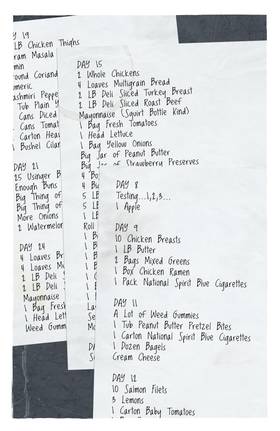 Y 19
LB Chicken Thighs
ram Masala
min
ound Coriand
meric
ashmiri Peppe
Tub Plain Y
Cans Diced
Cans Tomat
Carton Heav
Bushel Cilan
DAY 21
25 Usinger B
Enough Buns
Big Thing of
Big Thing of
More Onions
2 Watermelon
DAY 24
4 Loaves Br
4 Loaves M
2 LB Deli
2 LB Deli
Mayonnaise
1 Bag Fresh
1 Head Lett
Weed Gumm
DAY 15
2 Whole Chickens
4 Loaves Multigrain Bread
2 LB Deli Sliced Turkey Breast
2 LB Deli Sliced Roast Beef
Mayonnaise (Squirt Bottle Kind)
1 Bag Fresh Tomatoes
1 Head Lettuce
1 Bag Yellow Onions
Big Jar of Peanut Butter
Big Jar of Strawberry Preserves
4 Bo
4 Bu
5 LB
5 LB
5 LB
Roll
1 B
DAY 8
Testing...1,2,3...
1 Apple
DAY 9
10 Chicken Breasts
1 LB Butter
2 Bags Mixed Greens
1 Box Chicken Ramen
1 Pack National Spirit Blue Cigarettes
DAY 11
A Lot of Weed Gummies
1 Tub Peanut Butter Pretzel Bites
1 Carton National Spirit Blue Cigarettes
1 Dozen Bagels
Cream Cheese
DAY 12
10 Salmon Filets
3 Lemons
1 Carton Baby Tomatoes